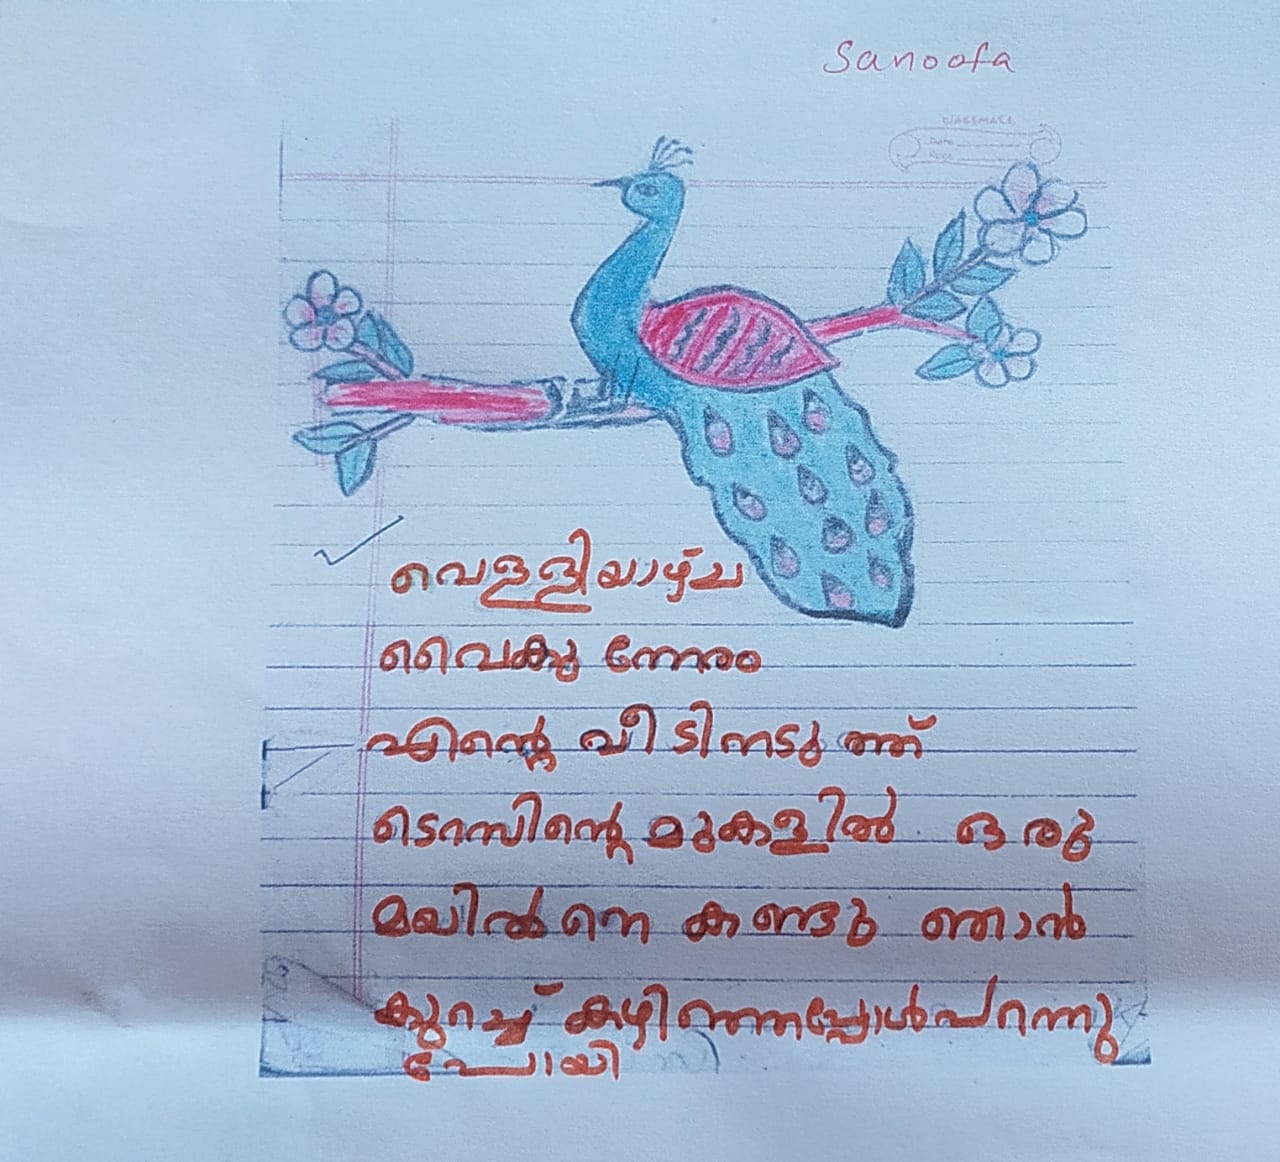 Sanoofa
CLASSMATE
Date
Page
വെള്ളിയാഴ്ച
വൈകു ന്നേരം
എന്റെ വീടിനടുത്ത്
ടെറസിന്റെ മുകളിൽ ഒരു
മയിൽനെ കണ്ടു ഞാൻ
കുറച്ച് കഴിഞ്ഞപ്പോൾ പറന്നു
പോയി